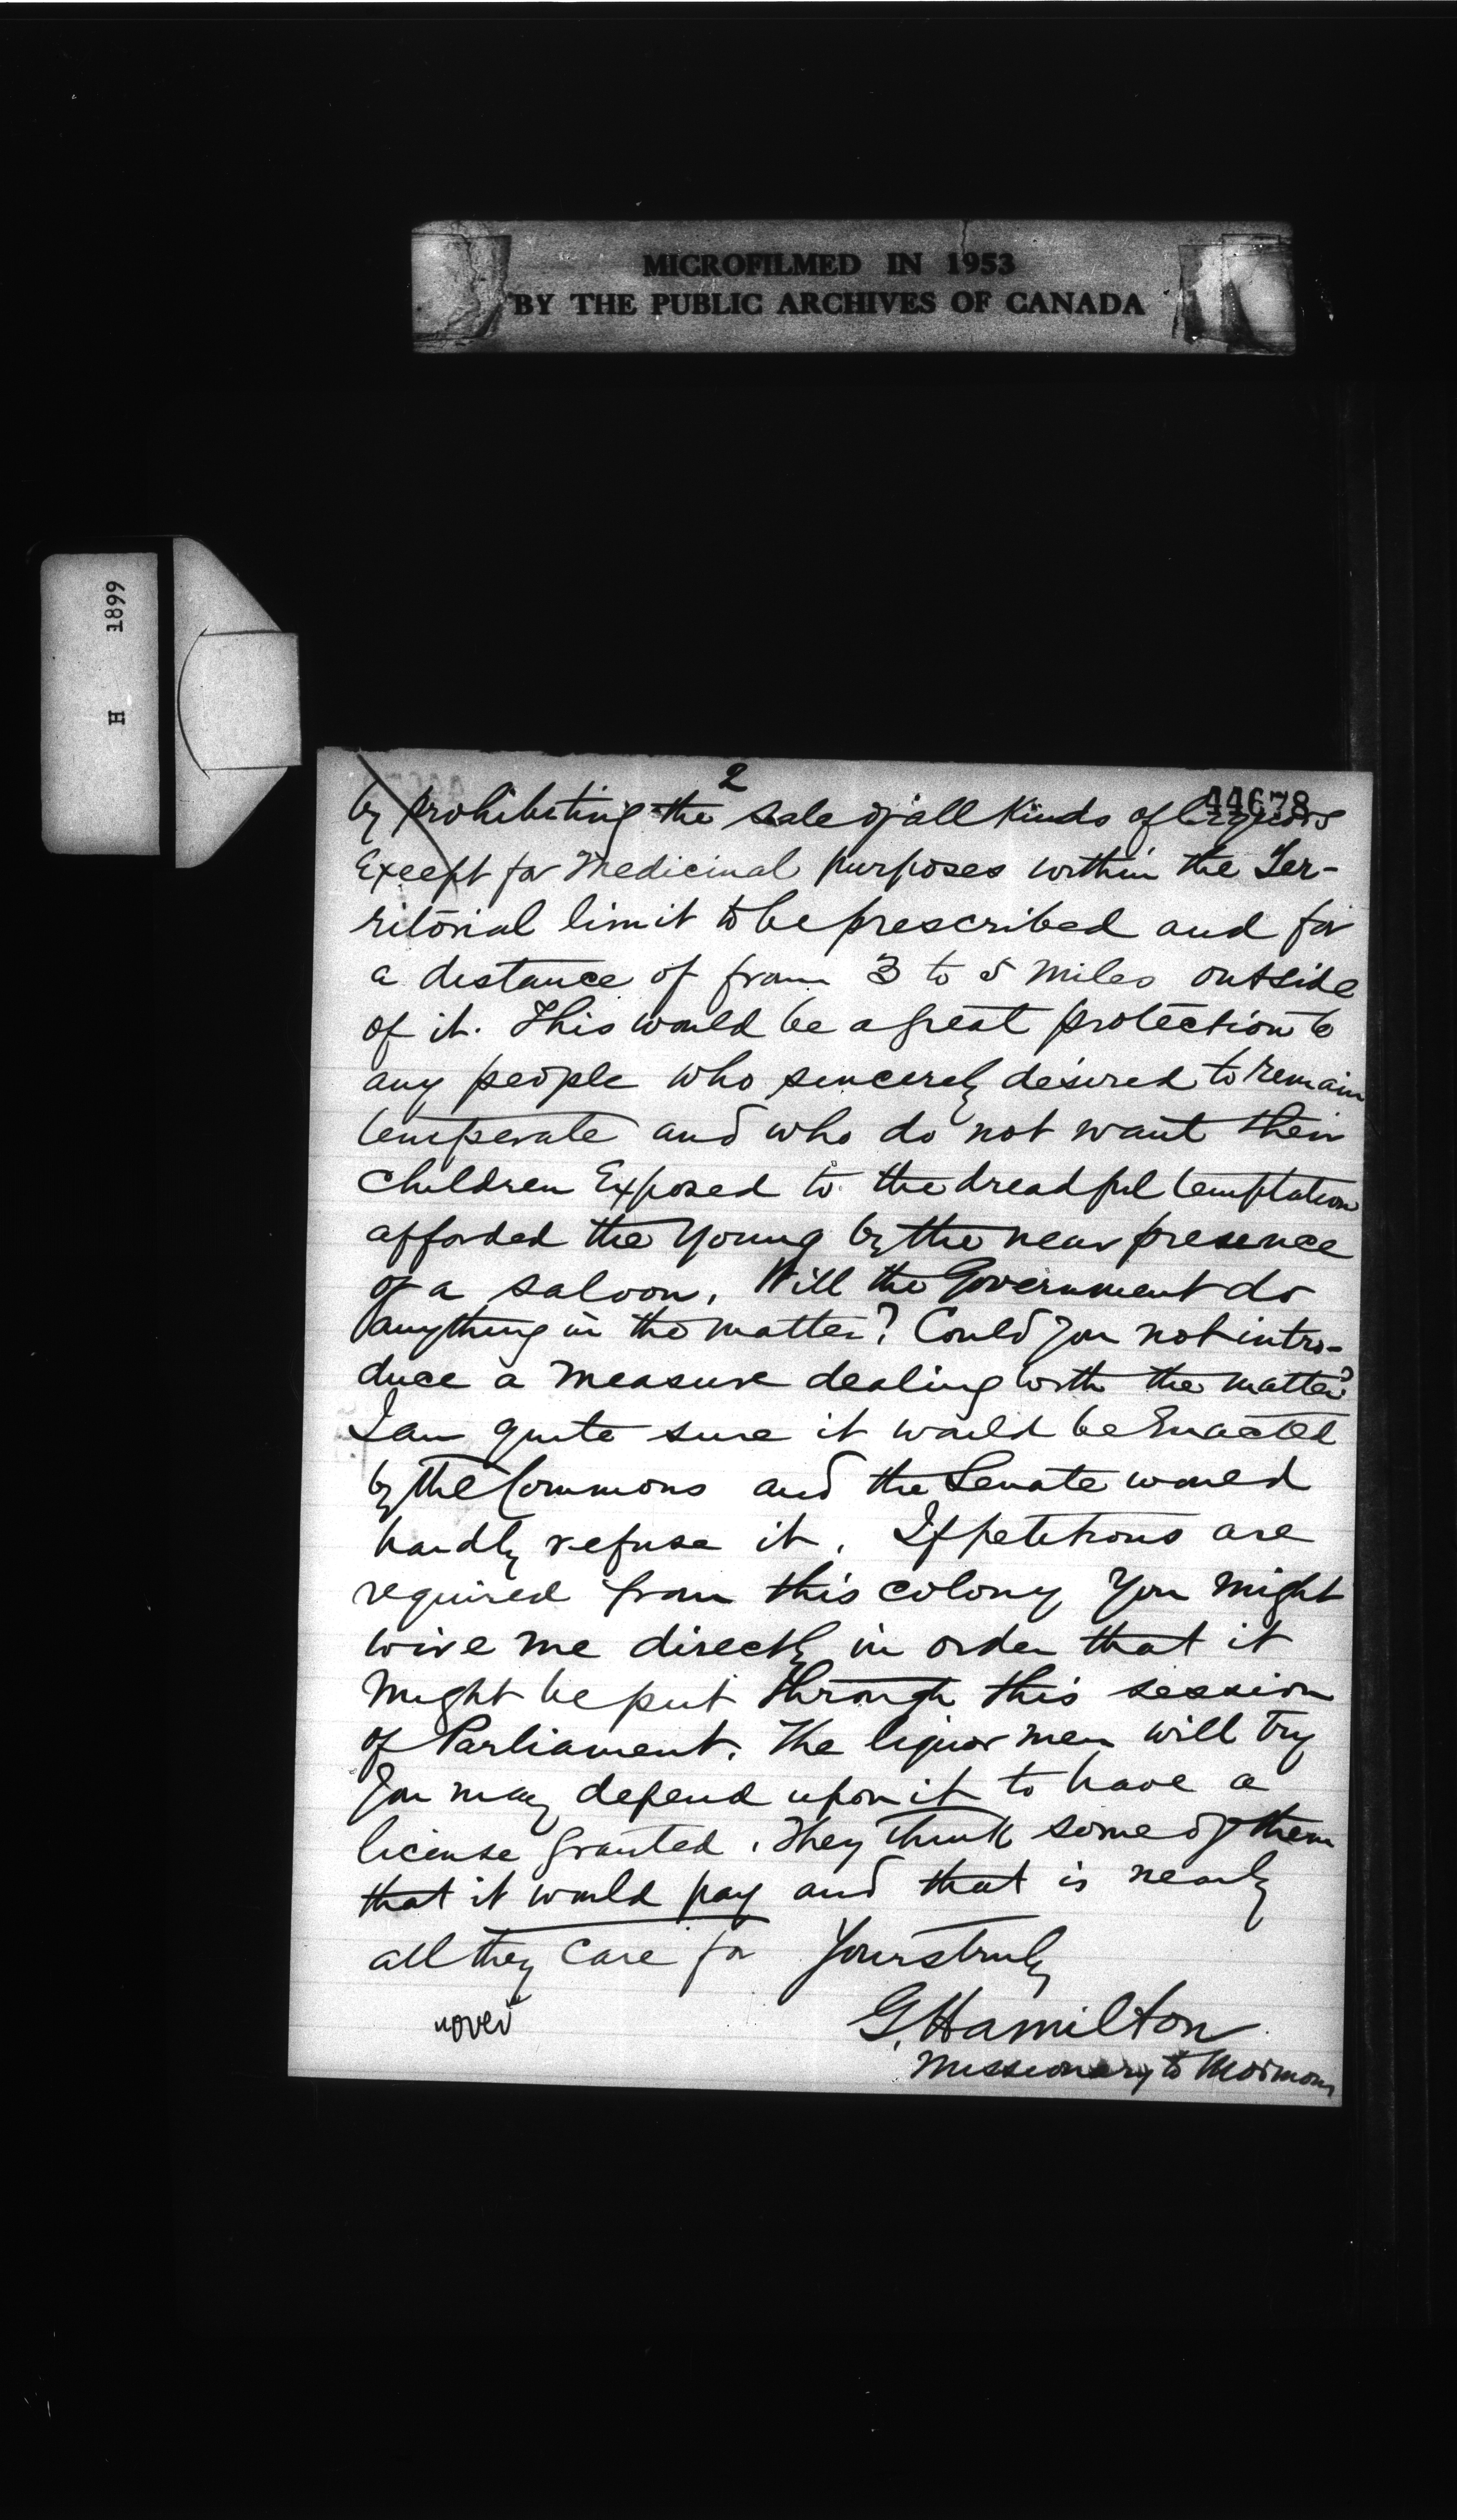 MICROFILMED IN 1953
BY THE PUBLIC ARCHIVES OF CANADA
H 1899
2
44678
by prohibiting the sale of all Kinds of liquors
Except for Medicinal purposes within the Ter-
ritorial limit to be prescribed and for
a distance of from 3 to 5 miles outside
of it. This would be a great protection to
any people who sincerely desired to remain
temperate and who do not want their
children Exposed to the dreadful temptation
afforded the young by the near presence
of a saloon. Will the Government do
anything in the matter? Could you not intro-
duce a measure dealing with the matter?
I am quite sure it would be Enacted
by the Commons and the Senate would
hardly refuse it. If petitions are
required from this colony you might
wire me directly in order that it
might be put through this session
of Parliament. The liquor men will try
you may depend upon it to have a
license granted. They think some of them
that it would pay and that is nearly
all they care for Yours truly
G. Hamilton
over
Missionary to Mormons